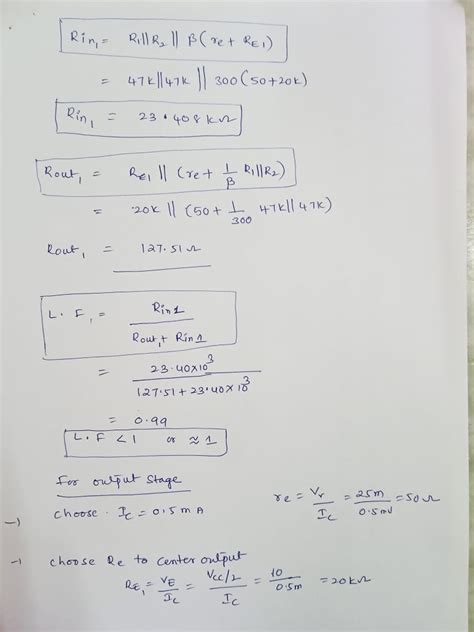 Rin₁ = R₁||R₂ || β(re + RE₁)
= 47k||47k || 300(50+20k)
Rin₁ = 23.408kΩ
Rout₁ = RE₁ || (re + 1/β R₁||R₂)
= 20k || (50 + 1/300 47k||47k)
Rout₁ = 127.51Ω
L.F₁ = Rin1 / Rout₁ + Rin1
= 23.40x10³ / 127.51 + 23.40x10³
= 0.99
L.F < 1 or ≈ 1
For output stage
choose Ic = 0.5mA re = Vr/Ic = 25m/0.5mV = 50Ω
choose Re to center output
RE₁ = VE/Ic = Vcc/2/Ic = 10/0.5m = 20kΩ